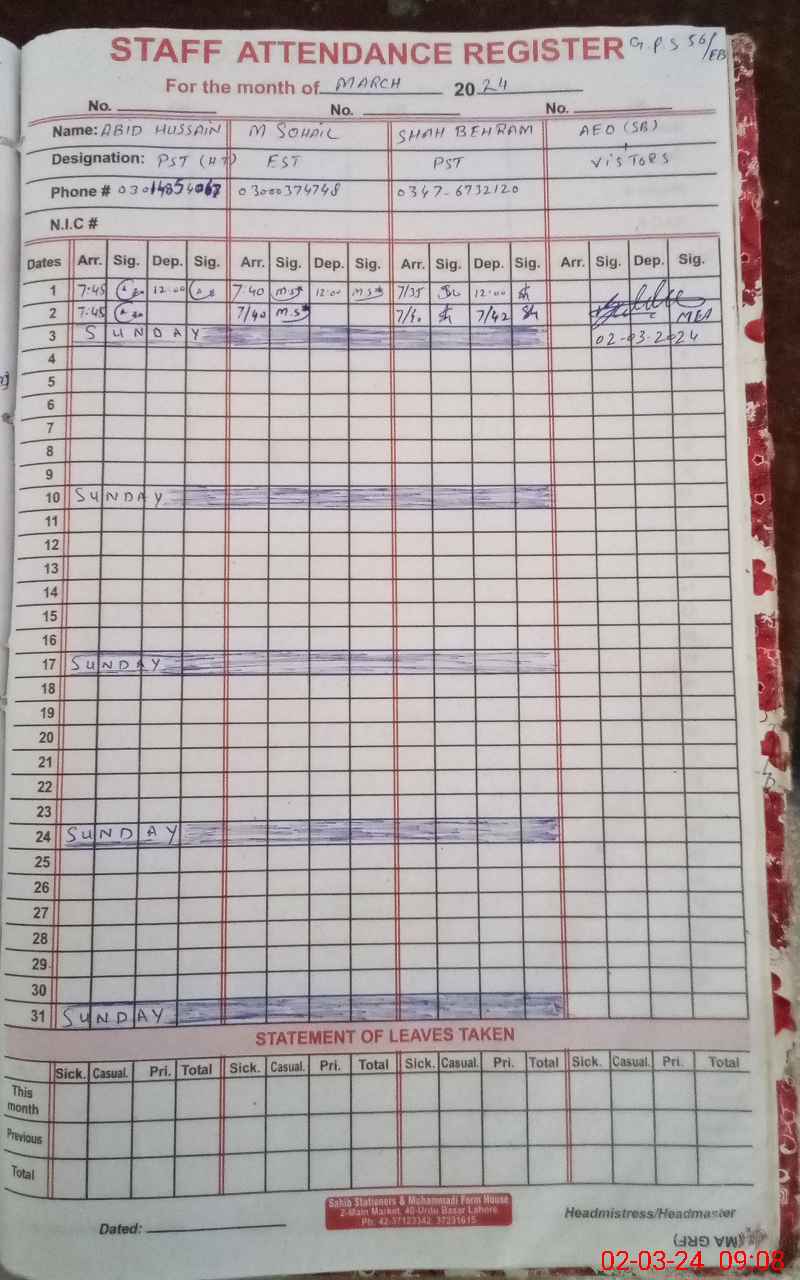 STAFF ATTENDANCE REGISTER G.P.S 56/EB
For the month of MARCH 2024
No. No. No.
Name: ABID HUSSAIN M SOHAIL SHAH BEHRAM AEO (SB)
Designation: PST (HT) EST PST VISTORS
Phone # 03000374748 0347-6732120
N.I.C #
Dates Arr. Sig. Dep. Sig. Arr. Sig. Dep. Sig. Arr. Sig. Dep. Sig. Arr. Sig. Dep. Sig.
1 7:45 12:00 7:40 12:00 7/35 12:00
2 7:45 7/40 7/40 7/42 MEA
3 SUNDAY 02-03-2024
4
5
6
7
8
9
10 SUNDAY
11
12
13
14
15
16
17 SUNDAY
18
19
20
21
22
23
24 SUNDAY
25
26
27
28
29
30
31 SUNDAY
STATEMENT OF LEAVES TAKEN
Sick. Casual. Pri. Total Sick. Casual. Pri. Total Sick. Casual. Pri. Total Sick. Casual. Pri. Total
This month
Previous
Total
Sahib Stationers & Muhammadi Form House
2-Main Market, 40-Urdu Bazar Lahore.
Ph: 42-37123342, 37231615
Dated: Headmistress/Headmaster
(MA GRF)
02-03-24 09:08